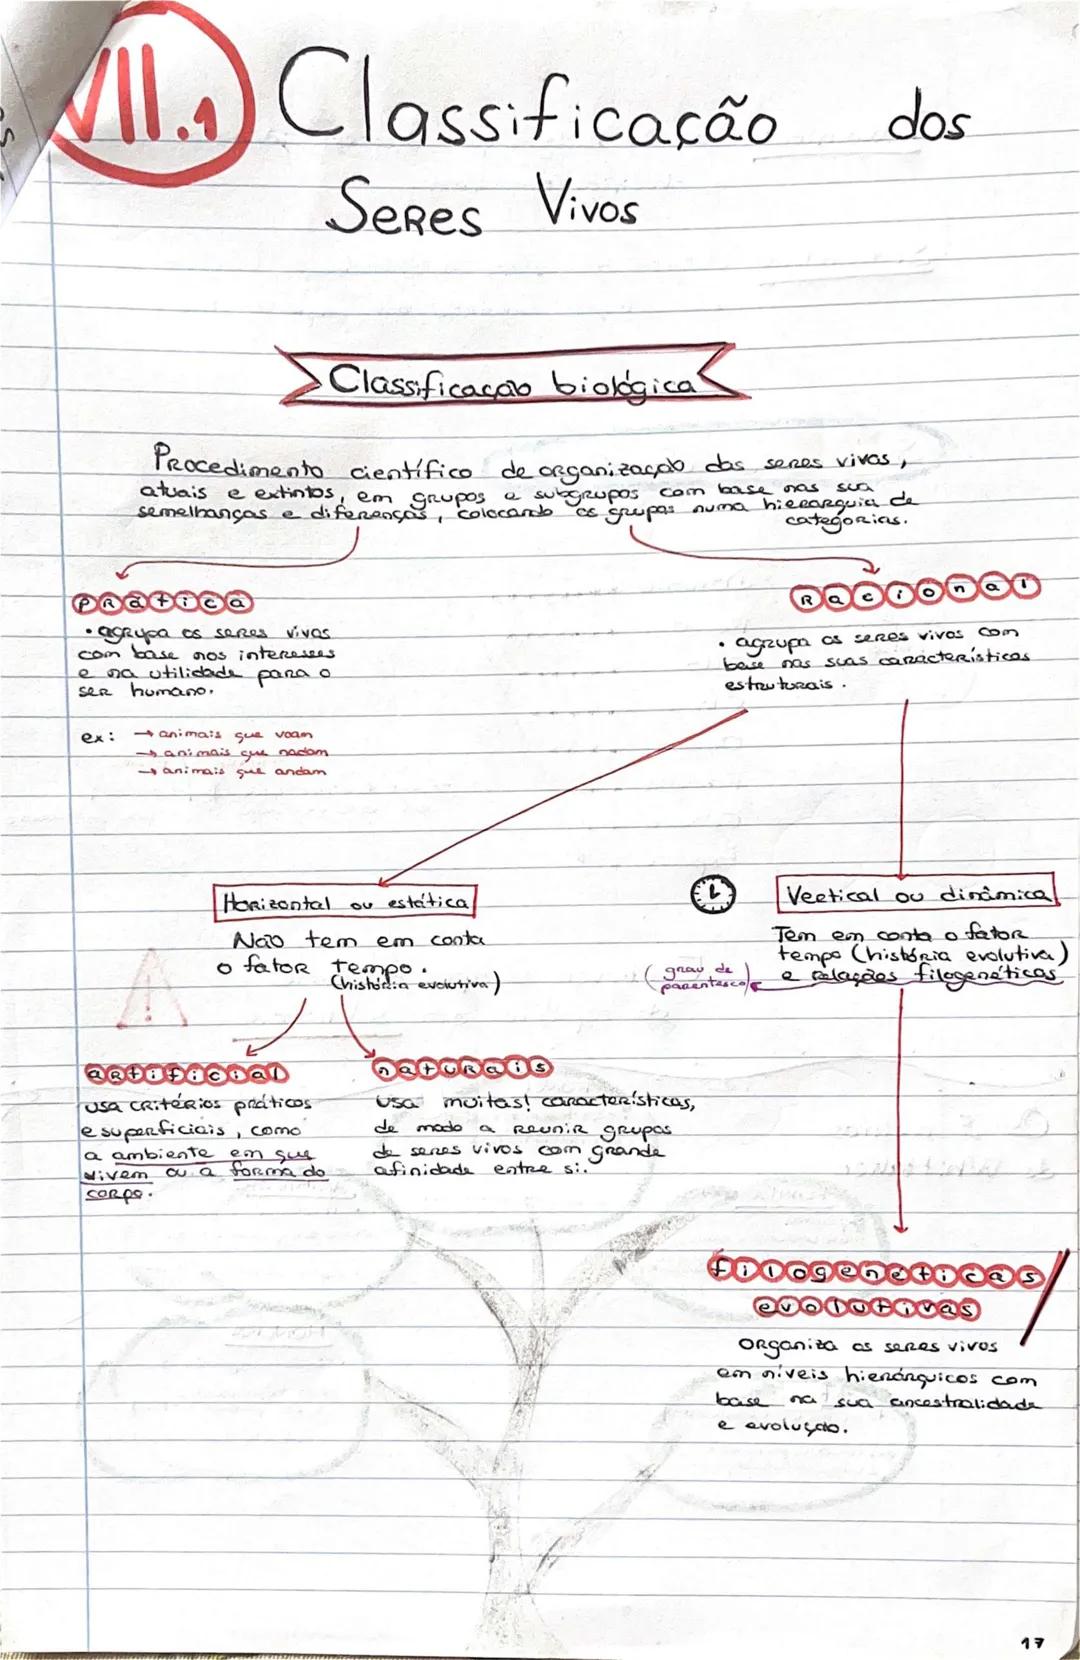 VII.1 Classificação dos
Seres Vivos
Classificação biológica
Procedimento científico de organização dos seres vivos,
atuais e extintos, em grupos e subgrupos com base nas sua
semelhanças e diferenças, colocando os grupos numa hierarquia de
categorias.
Prática
• agrupa os seres vivos
com base nos interesses
e na utilidade para o
ser humano.
ex: → animais que voam
→ animais que nadam
→ animais que andam
Racional
• agrupa os seres vivos com
base nas suas características
estruturais.
Horizontal ou estática
Não tem em conta
o fator tempo.
(história evolutiva)
Vertical ou dinâmica
Tem em conta o fator
tempo (história evolutiva)
e relações filogenéticas
(grau de
parentesco)
artificial
usa critérios práticos
e superficiais, como
a ambiente em que
vivem ou a forma do
corpo.
naturais
usa muitas! características,
de modo a reunir grupos
de seres vivos com grande
afinidade entre si.
filogenéticas/
evolutivas
organiza os seres vivos
em níveis hierárquicos com
base na sua ancestralidade
e evolução.
17